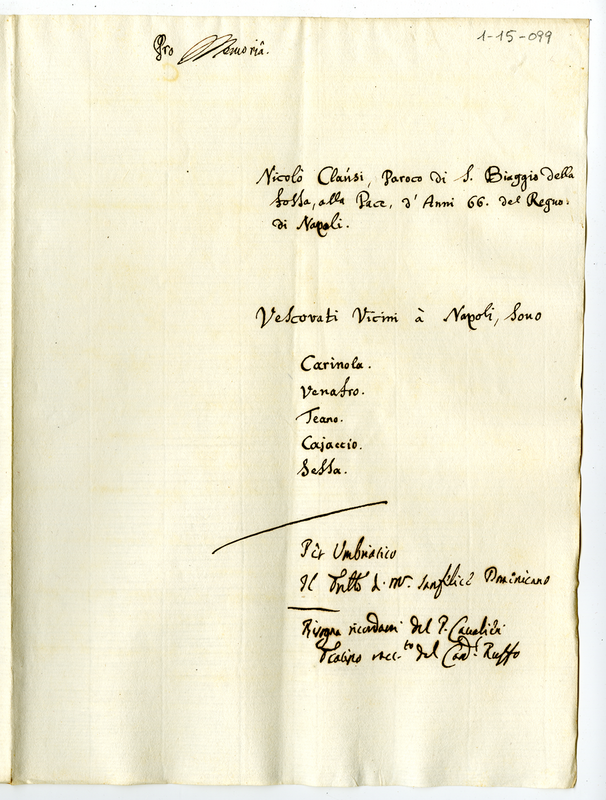 1-15-099
Pro Memoriâ.
Nicolô Clausi, Paroco di S. Biaggio della
fossa, alla Pace, d' Anni 66. del Regno
di Napoli.
Vescovati Vicini à Napoli, sono
Carinola.
Venafro.
Teano.
Cajaccio.
Sessa.
Per Umbriatico
Il Frãte di Mr. Sanfelice Dominicano
Bisogna ricordarsi del P. Cavalieri
Teatino racc.to del Card.l Ruffo